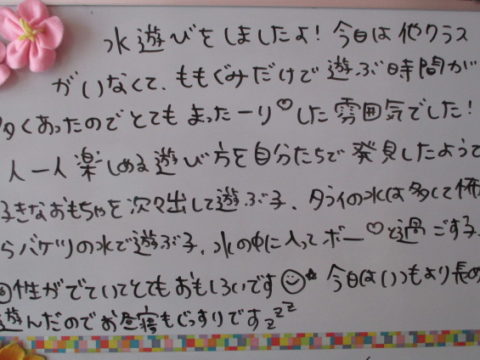 水遊びをしましたよ！今日は他クラス
がいなくて、ももぐみだけで遊ぶ時間が
多くあったのでとてもまったーり♡した雰囲気でした！
人一人楽しめる遊び方を自分たちで発見したようで
好きなおもちゃを次々出して遊ぶ子、タライの水は多くて怖
らバケツの水で遊ぶ子、水の中に入ってボー♡と過ごす子
個性がでていてとてもおもしろいです☺★ 今日はいつもより長め
遊んだのでお昼寝もぐっすりですzzz